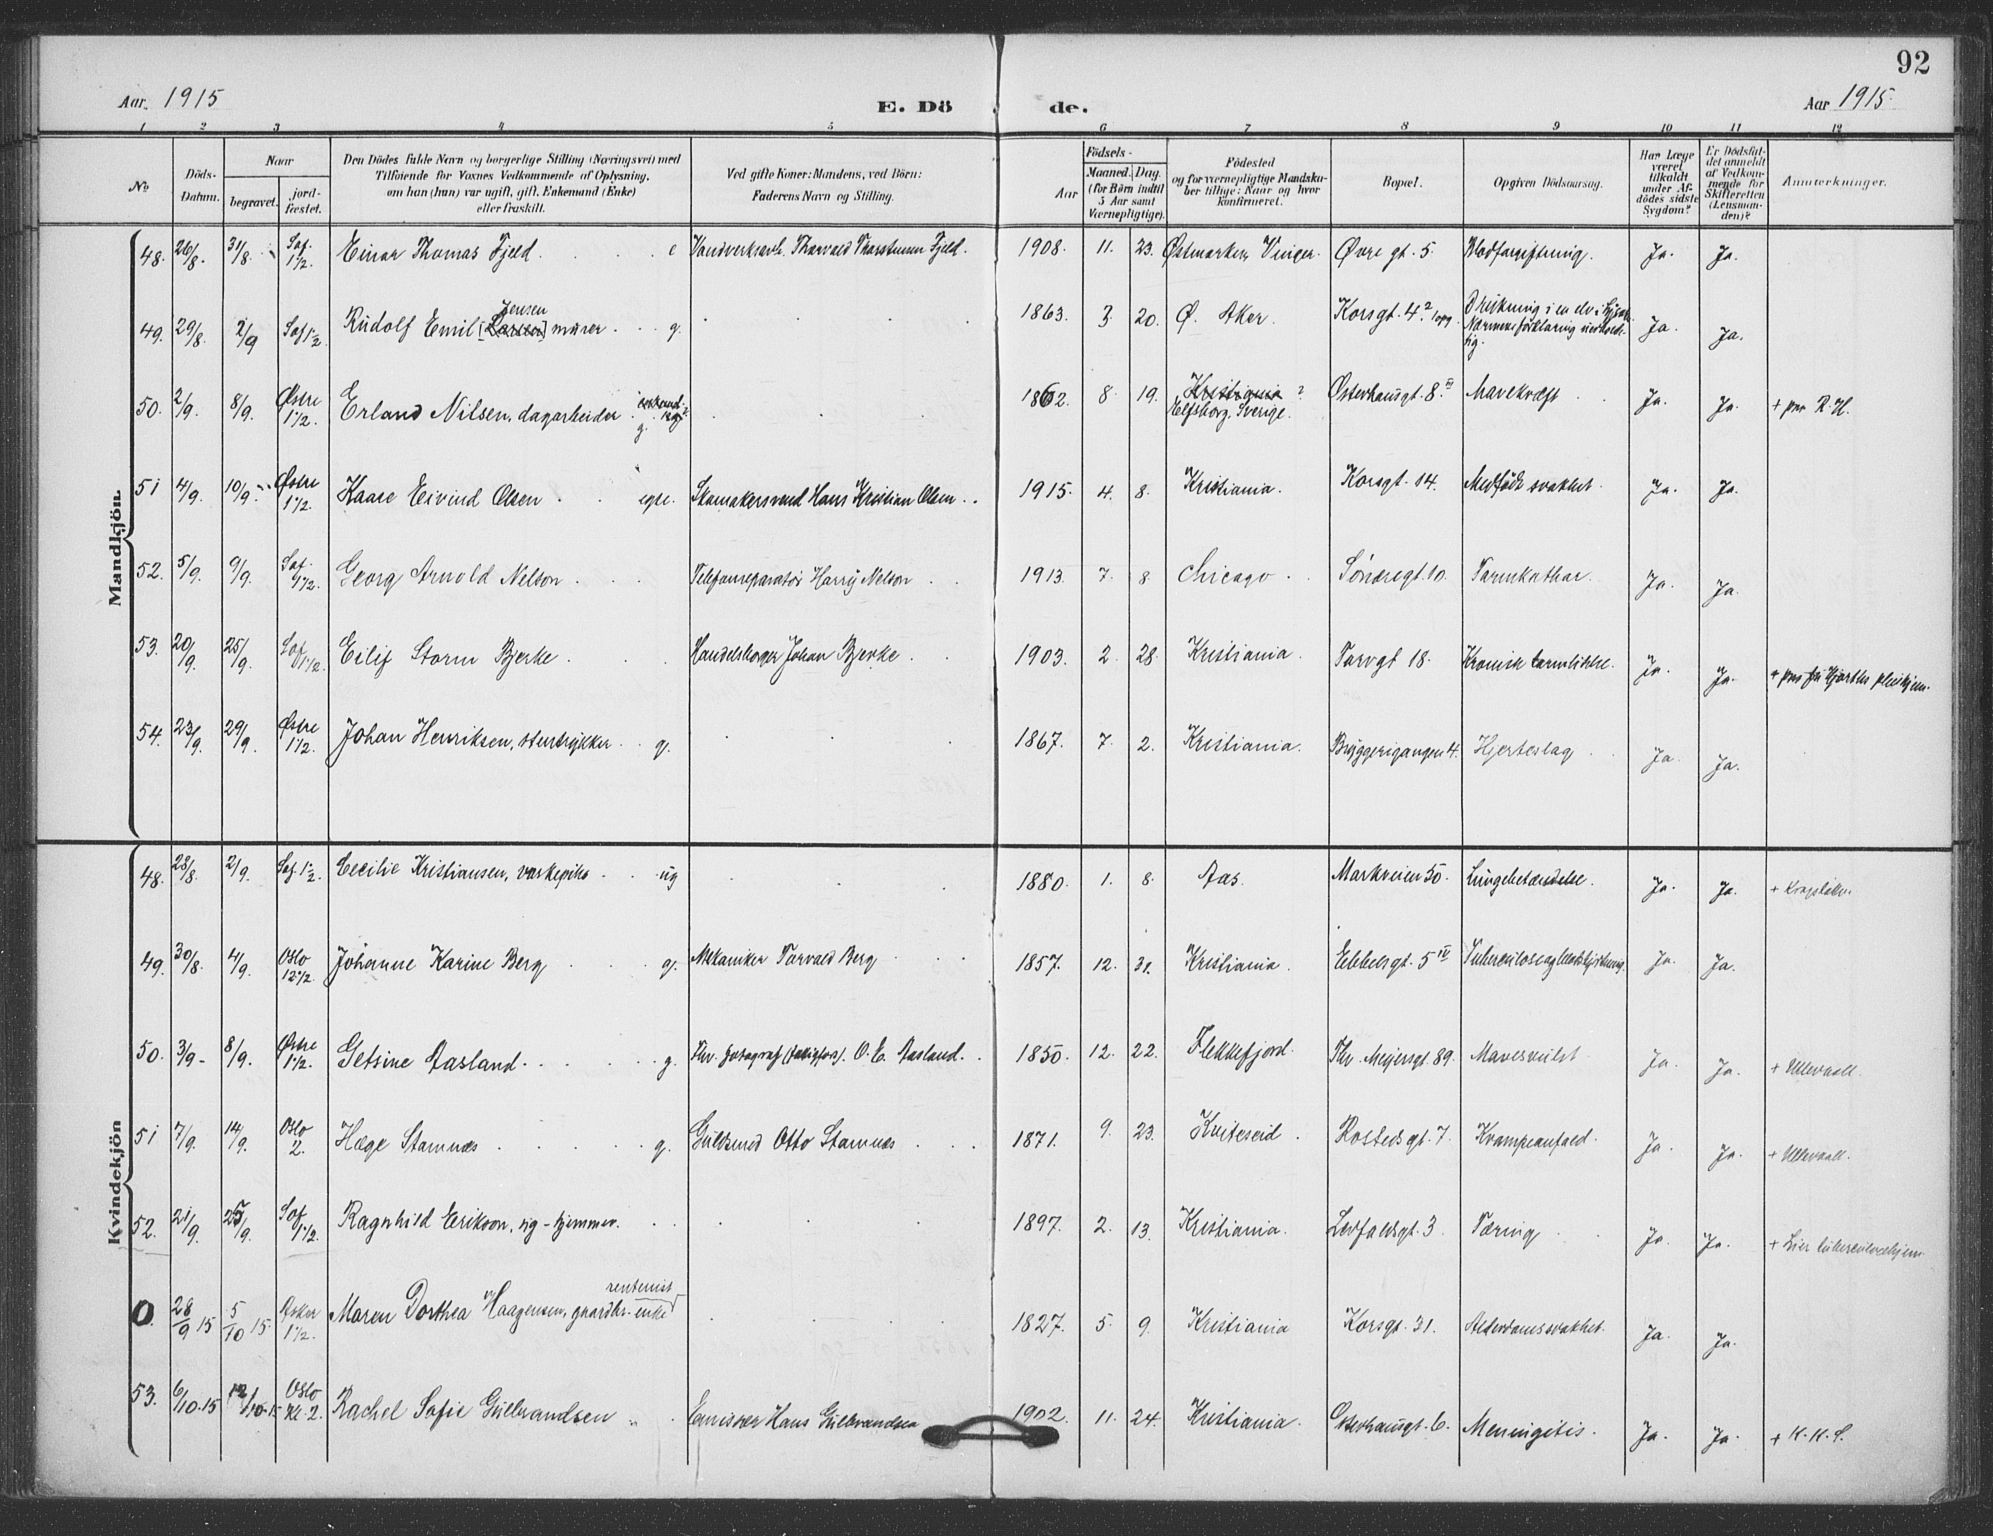 92
Aar. 1915
E. Dö de.
Aar 1915.
1 2 3 4 5 6 7 8 9 10 11 12
No
Döds-Datum.
Naar
begravet.
jordfæstet.
Den Dödes fulde Navn og borgerlige Stilling (Næringsvei) med
Tilföiende for Voxnes Vedkommende af Oplysning,
om han (hun) var ugift, gift, Enkemand (Enke)
eller fraskilt.
Ved gifte Koner: Mandens, ved Börn:
Faderens Navn og Stilling.
Födsels-
Aar
Maaned. Dag.
(for Börn indtil
5 Aar samt
Værnepligtige).
Födested
og for værnepligtige Mandskaber tillige: Naar og hvor
konfirmeret.
Bopæl.
Opgiven Dödsaarsag.
Har Læge
været
tilkaldt
under Afdödes sidste
Sygdom?
Er Dödsfaldet anmeldt
af Vedkommende for
Skifteretten
(Lensmanden)?
Anmærkninger.
Mandkjön.
48. 26/8. 31/8. Sof. 1 1/2. Einar Thomas Fjeld. Thorvald Fjeld. 1908. 11. 23. Østmarken, Vinger. Øvre gt. 5. Blodforgiftning. Ja. Ja.
49. 29/8. 2/9 Sof 1 1/2 Rudolf Emil [Larsen] Jensen murer g. 1863. 3 20. Ø. Aker. Korsgt. 4. Ja. Ja.
50. 2/9. 8/9. Østre 1 1/2. Erland Nilsen, dagarbeider g. 1862. 8. 19. Kristiania ? Elfsborg, Sverige. Østerhausgt. 8 Mavekræft Ja. Ja. + paa R. H.
51 4/9. 10/9. Østre 1 1/2. Kaare Eivind Olsen egte. Skomakersvend Hans Kristian Olsen 1915. 4. 8. Kristiania. Korsgt. 14. Medfødt svakhet. Ja. Ja.
52. 5/9. 9/9. Sof. 1 1/2. Georg Arnold Nelson. Telefonreparatør Harry Nelson 1913. 7. 8. Chicago Søndregt. 10. Tarmkathar. Ja. Ja.
53. 20/9. 25/9. Sof 1 1/2 Eilif Storm Bjerke. Handelsborger Johan Bjerke 1903. 2. 28. Kristiania. Torvgt 18. Kronisk tarmlidelse. Ja. Ja. + paa fru Hjorths pleiehjem.
54. 23/9. 29/9. Østre 1 1/2. Johan Henriksen, stentrykker g. 1867. 7. 2. Kristiania. Bryggerigangen 4. Hjerteslag Ja. Ja.
Kvindekjön
48. 28/8. 2/9. Sof 1 1/2. Cecilie Kristiansen, vaskepike ug 1880. 1. 8. Aas. Markveien 50. Lungebetændelse. Ja. Ja. + Krogstøtten
49. 30/8. 4/9. Oslo 12 1/2. Johanne Karine Berg g. Mekaniker Torvald Berg 1857. 12. 31. Kristiania. Ebbelsgt. 5 IV Ja. Ja.
50. 3/9 8/9. Østre 1 1/2. Getsine Aasland. g. Fhv. fotograf O. E. Aasland. 1850. 12. 22. Flekkefjord. Thv. Meyersgt. 89. Mavesvulst Ja. Ja. + Ullevaal.
51 7/9. 14/9. Oslo 2. Hæge Stamnæs g. Guldsmed Otto Stamnæs 1871. 9. 23. Kviteseid. Rostedsgt. 7. Krampeanfald. Ja. Ja. + Ullevaal.
52. 21/9. 25/9. Sof 1 1/2. Ragnhild Erikson, ug - hjemmev. 1897. 2. 13. Kristiania. Ledfaldsgt. 3 Tæring Ja. Ja. + Lier tuberculosehjem
0. 28/9 15 5/10 15. Asker 1 1/2. Maren Dorthea Haagensen, gaardbr. enke rentenist 1827. 5. 9. Kristiania Korsgt. 31. Alderdomssvakhet. Ja. Ja.
53. 6/10-15 12/10-15 Oslo Kl. 2. Rachel Sofie Gulbrandsen Emissær Hans Gulbrandsen 1902. 11. 24. Kristiania. Osterhausgt. 6. Meningitis. Ja. Ja. + K. K. S.